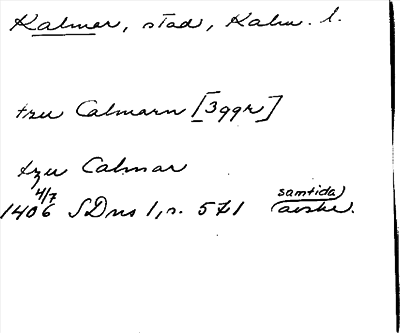 Kalmar, stad, Kalm. l.
tzu Calmarn [3ggr]
tzu Calmar
4/7 samtida
1406 SDns 1, s. 571 avskr.